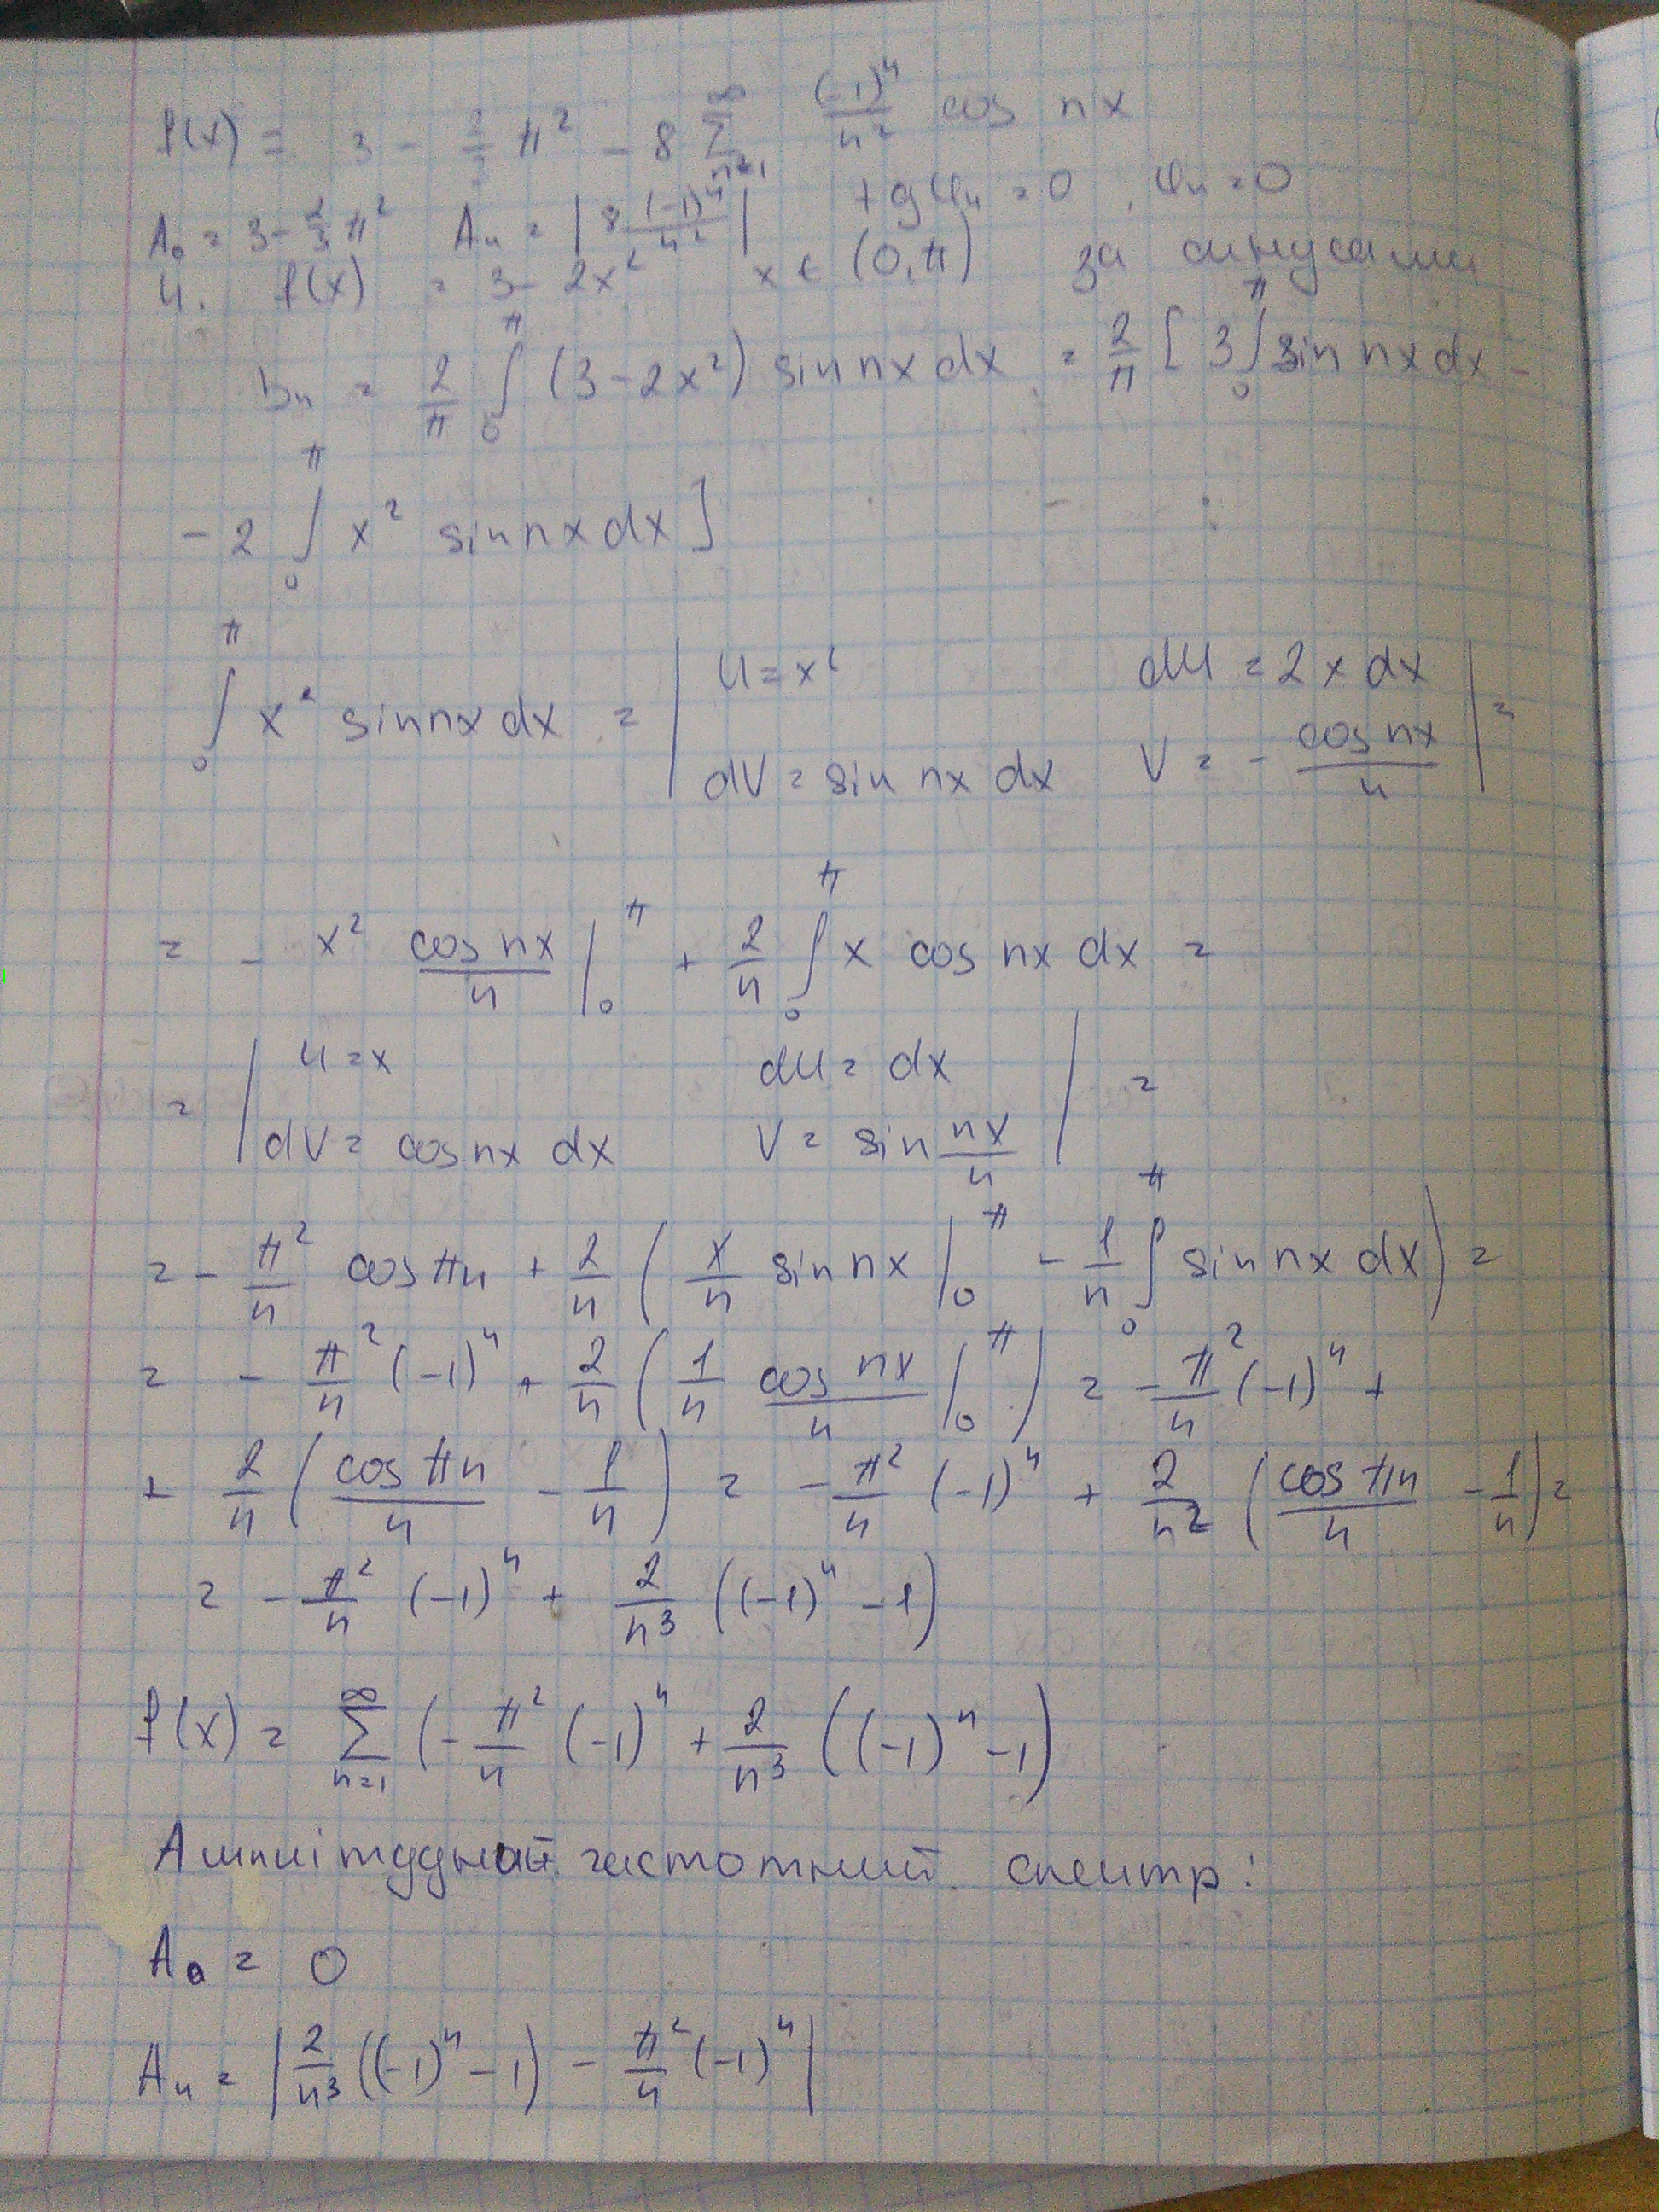 f(x) = 3 - 2/3 π² - 8 ∑_{n=1}^{∞} (-1)ⁿ/n² cos nx
A₀ = 3 - 2/3 π² Aₙ = |8 (-1)ⁿ/n²| tg φₙ = 0, φₙ = 0
4. f(x) = 3 - 2x² x ∈ (0, π) за синусами
bₙ = 2/π ∫₀^π (3 - 2x²) sin nx dx = 2/π [3 ∫₀^π sin nx dx -
- 2 ∫₀^π x² sin nx dx]
∫₀^π x² sin nx dx = | u = x² du = 2x dx
dv = sin nx dx v = - cos nx/n | =
= - x² cos nx/n |₀^π + 2/n ∫₀^π x cos nx dx =
= | u = x du = dx
dv = cos nx dx v = sin nx/n | =
= - π²/n cos πn + 2/n (x/n sin nx |₀^π - 1/n ∫₀^π sin nx dx) =
= - π²/n (-1)ⁿ + 2/n (1/n cos nx/n |₀^π) = - π²/n (-1)ⁿ +
+ 2/n (cos πn/n - 1/n) = - π²/n (-1)ⁿ + 2/n² (cos πn/n - 1/n) =
= - π²/n (-1)ⁿ + 2/n³ ((-1)ⁿ - 1)
f(x) = ∑_{n=1}^{∞} (- π²/n (-1)ⁿ + 2/n³ ((-1)ⁿ - 1)
Амплітудний частотний спектр:
A₀ = 0
Aₙ = |2/n³ ((-1)ⁿ - 1) - π²/n (-1)ⁿ|